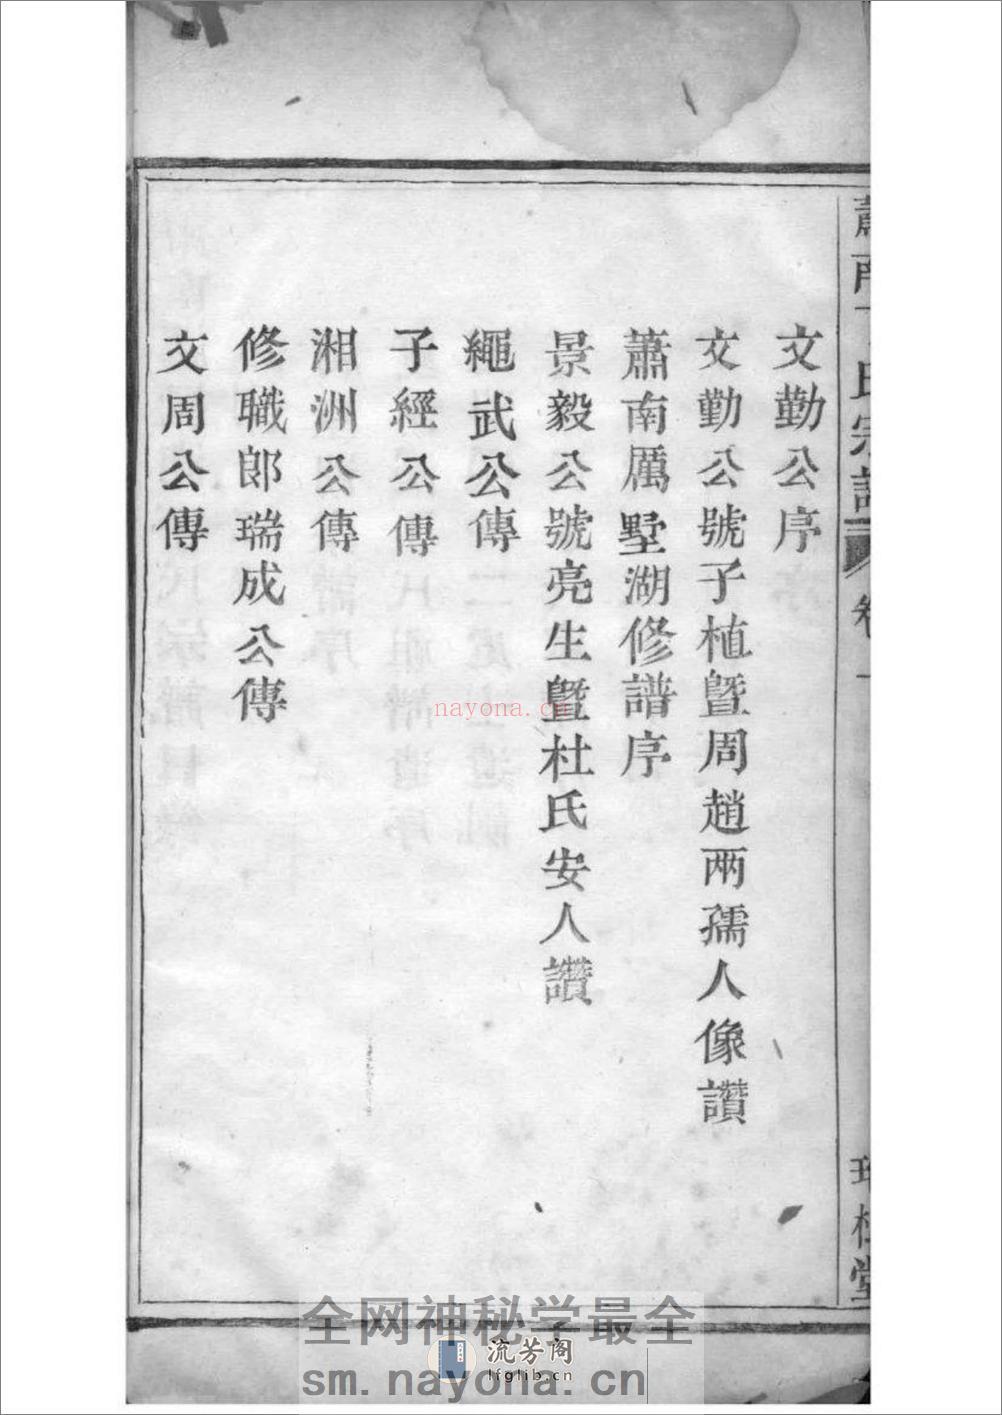 文勤公序
文勤公號子植暨周趙兩孺人像讚
蕭南厲墅湖修譜序
景毅公號亮生暨杜氏安人讚
繩武公傳
子經公傳
湘洲公傳
修職郎瑞成公傳
文周公傳
nayona.cn
全网神秘学最全
流芳阁
lfglib.cn
sm.nayona.cn